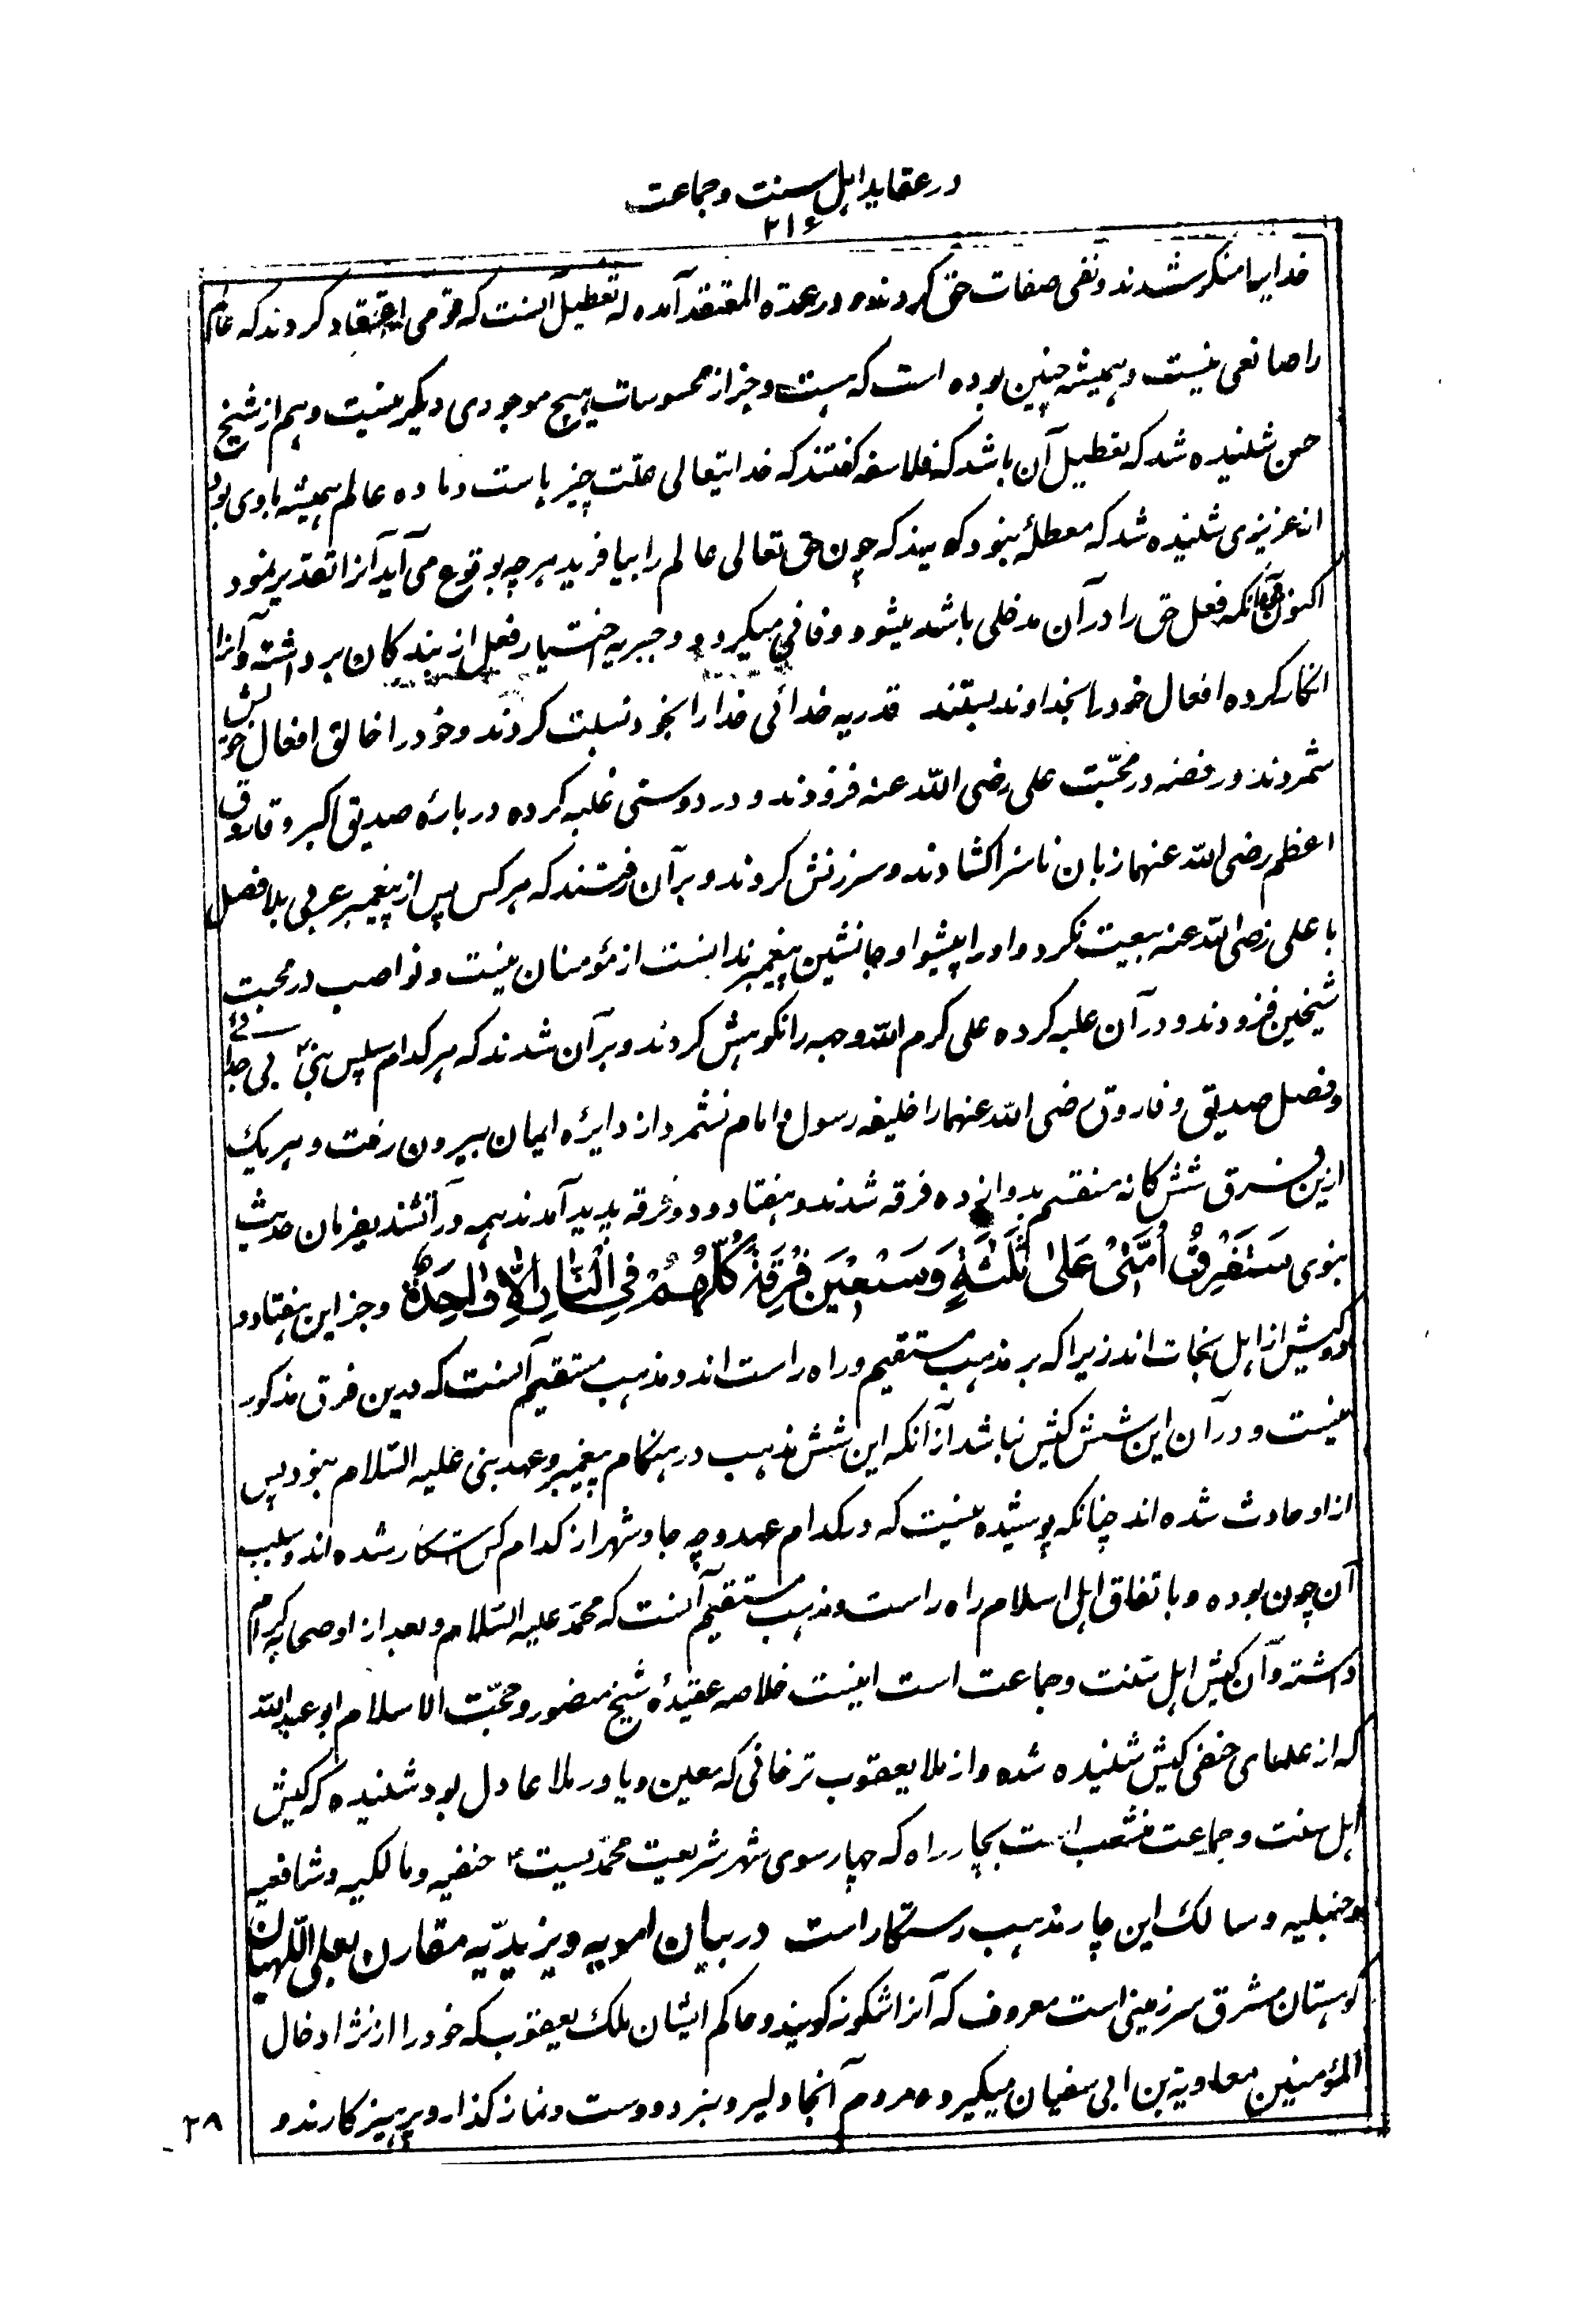 در عقاید اہل سنت و جماعت
۲۱۶
خدایرا منکر شدند و نفی صفات حق کردند و در عمدۃ المعتقد آمدہ کہ تعطیل آنست کہ قومی اعتقاد کردند کہ عالم
را صانعی نیست و ہمیشہ چنین بودہ است کہ ہست و جز از محسوسات ہیچ موجودی دیگر نیست و ہم از شیخ
حسن شنیدہ شد کہ تعطیل آن باشد کہ فلاسفہ گفتند کہ خدایتعالی علت چیزہاست و مادہ عالم ہمیشہ با وی بود
از عزیزی شنیدہ شد کہ معطلۂ نبود گویند کہ چون حق تعالی عالم را بیافرید ہرچہ بوقوع می آید آنرا تقدیر نمود
اکنون آنکہ فعل حق را در آن مدخلی باشد میشود و فانی میگردد و جبریہ اختیار فعل از بندگان برداشتہ و آنرا
انکار کردہ افعال خود را بخداوند بستند قدریہ خدائی خدا را بخود نسبت کردند و خود را خالق افعال خویش
شمردند و رفضہ در محبّت علی رضی اللّٰہ عنہ فزودند و در دوستی غلبہ کردہ دربارۂ صدیق اکبر و فاروق
اعظم رضی اللّٰہ عنہما زبان ناسزا کشادند و سرزنش کردند و برآن رفتند کہ ہر کس پس از پیغمبر عربی بلا فصل
با علی رضی اللّٰہ عنہ بیعت نکرد و او را پیشوا و جانشین پیغمبر ندانست از مؤمنان نیست و نواصب در محبت
شیخین فزودند و در آن غلبہ کردہ علی کرم اللّٰہ وجہہ را نکوہش کردند و برآن شدند کہ ہر کدام پس نبی بی جدائی
و فصل صدیق و فاروق رضی اللّٰہ عنہما را خلیفہ رسول و امام نشمرد از دایرہ ایمان بیرون رفت و ہر یک
ازین فرق شش کانہ منقسم بدوازدہ فرقہ شدند و ہفتاد و دو فرقہ پدید آمدند ہمہ در آتشند بفرمان حدیث
نبوی سَتَفْتَرِقُ اُمَّتِیْ عَلیٰ ثَلٰثَةٍ وَّسَبْعِیْنَ فِرْقَةً کُلُّهُمْ فِی النَّارِ اِلَّا وَاحِدَةٌ و جز این ہفتاد و
دو کیش از اہل نجات اند زیرا کہ بر مذہب مستقیم و راہ راست اند و مذہب مستقیم آنست کہ درین فرق مذکور
نیست و در آن این شش کیش نباشد از آنکہ این شش مذہب در ہنگام پیغمبر و عہد نبی علیہ السّلام نبود پس
از او حادث شدہ اند چنانکہ پوشیدہ نیست کہ در کدام عہد و چہ جا و شہر از کدام کس آشکار شدہ اند و سبب
آن چون بودہ و باتفاق اہل اسلام راہ راست و مذہب مستقیم آنست کہ محمّد علیہ السّلام و بعد از او صحابہ کرام
داشتہ و آن کیش اہل سنّت و جماعت است اینست خلاصہ عقیدۂ شیخ منصور و محبّت الاسلام ابو عبداللّٰہ
کہ از علمای حنفی کیش شنیدہ شدہ و از ملا یعقوب ترخانی کہ معین و یاور ملا عادل بود شنیدہ کہ کیش
اہل سنت و جماعت منشعب است بچار راہ کہ چہار سوی شہر شریعت محمّدیست حنفیہ و مالکیہ و شافعیہ
و حنبلیہ و سالک این چار مذہب رستگار است در بیان امویہ و یزیدیّہ مقارن بعلی اللّہیان
کوہستان مشرق سرزمینی است معروف کہ آنرا شکونہ گویند و حاکم ایشان ملک یعقوب کہ خود را از نژاد خال
المؤمنین معاویۃ بن ابی سفیان میگیرد و مردم آنجا دلیر و نبرد دوست و نماز گذار و پرہیزکارند و
۲۸